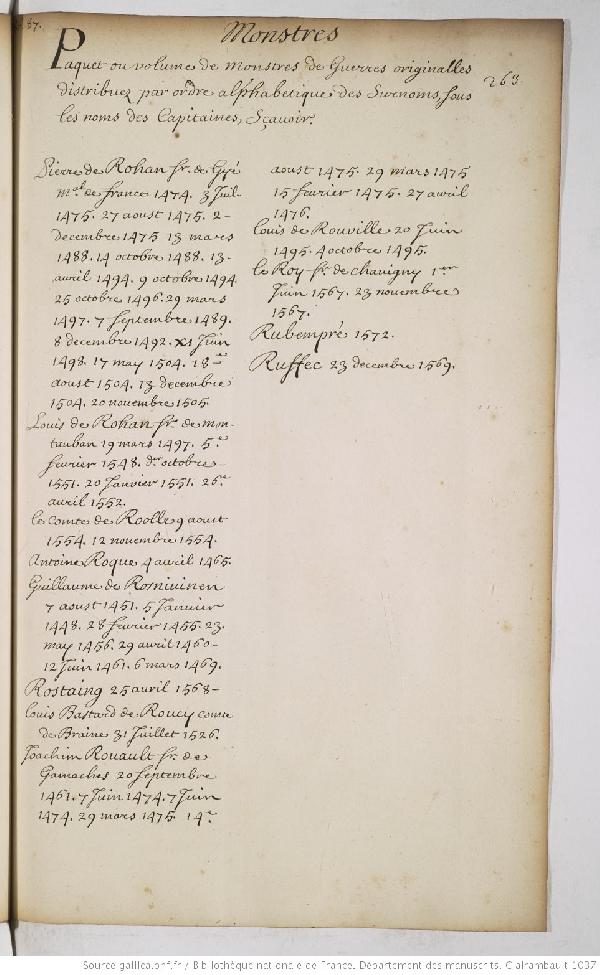 87.
Monstres
Paquet ou volume de monstres de Guerres originalles
distribuez par ordre alphabetique des Surnoms, sous
les noms des Capitaines, Sçavoir.
263.
Pierre de Rohan sr. de Gyé
mal de france 1474. 3 Juil-
1475. 27 aoust 1475. 2-
decembre 1475 13 mars
1488. 14 octobre 1488. 13-
avril 1494. 9 octobre 1494
25 octobre 1496. 29 mars
1497. 7 septembre 1489.
8 decembre 1492. XI Juin
1498. 17 may 1504. 18
aoust 1504. 13 decembre
1504. 20 novembre 1505.
Louis de Rohan sr. de mon-
tauban 19 mars 1497. 5
fevrier 1548. octobre
1551. 20 Janvier 1551. 26
avril 1552.
le comte de Roolle 9 aoust
1554. 12 novembre 1554.
Antoine Roque 4 avril 1465.
Guillaume de Romivinen
7 aoust 1451. 5 Janvier
1448. 28 fevrier 1455. 23.
may 1456. 29 avril 1460-
12 Juin 1461. 6 mars 1469.
Rostaing 25 avril 1568-
Louis Bastard de Roucy comte
de Braine 31 Juillet 1526.
Joachim Rouault sr. de
Gamaches 20 septembre
1461. 7 Juin 1474. 7 Juin
1474. 29 mars 1475 14
aoust 1475. 29 mars 1475
15 fevrier 1475. 27 avril
1476.
Louis de Rouville 20 Juin
1495. 4 octobre 1495.
le Roy sr. de chavigny 1er
Juin 1567. 23 novembre
1567.
Rubempré 1572.
Ruffec 23 decembre 1569.
Source gallica.bnf.fr / Bibliothèque nationale de France. Département des manuscrits. Clairambault 1037